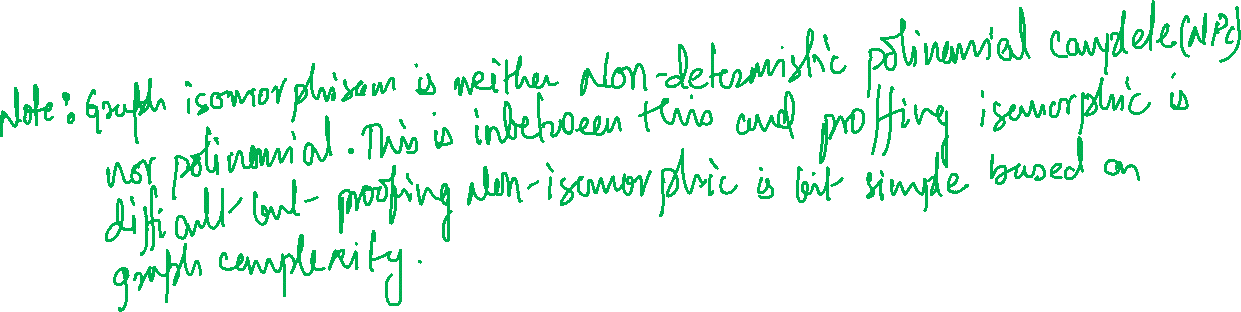 Note: Graph isomorphisam is neither Non-determistic polinomial complete (NPC)
nor polinomial. This is inbetween this and proffing isomorphic is
difficult but proofing Non-isomorphic is bit simple based on
graph complexity.